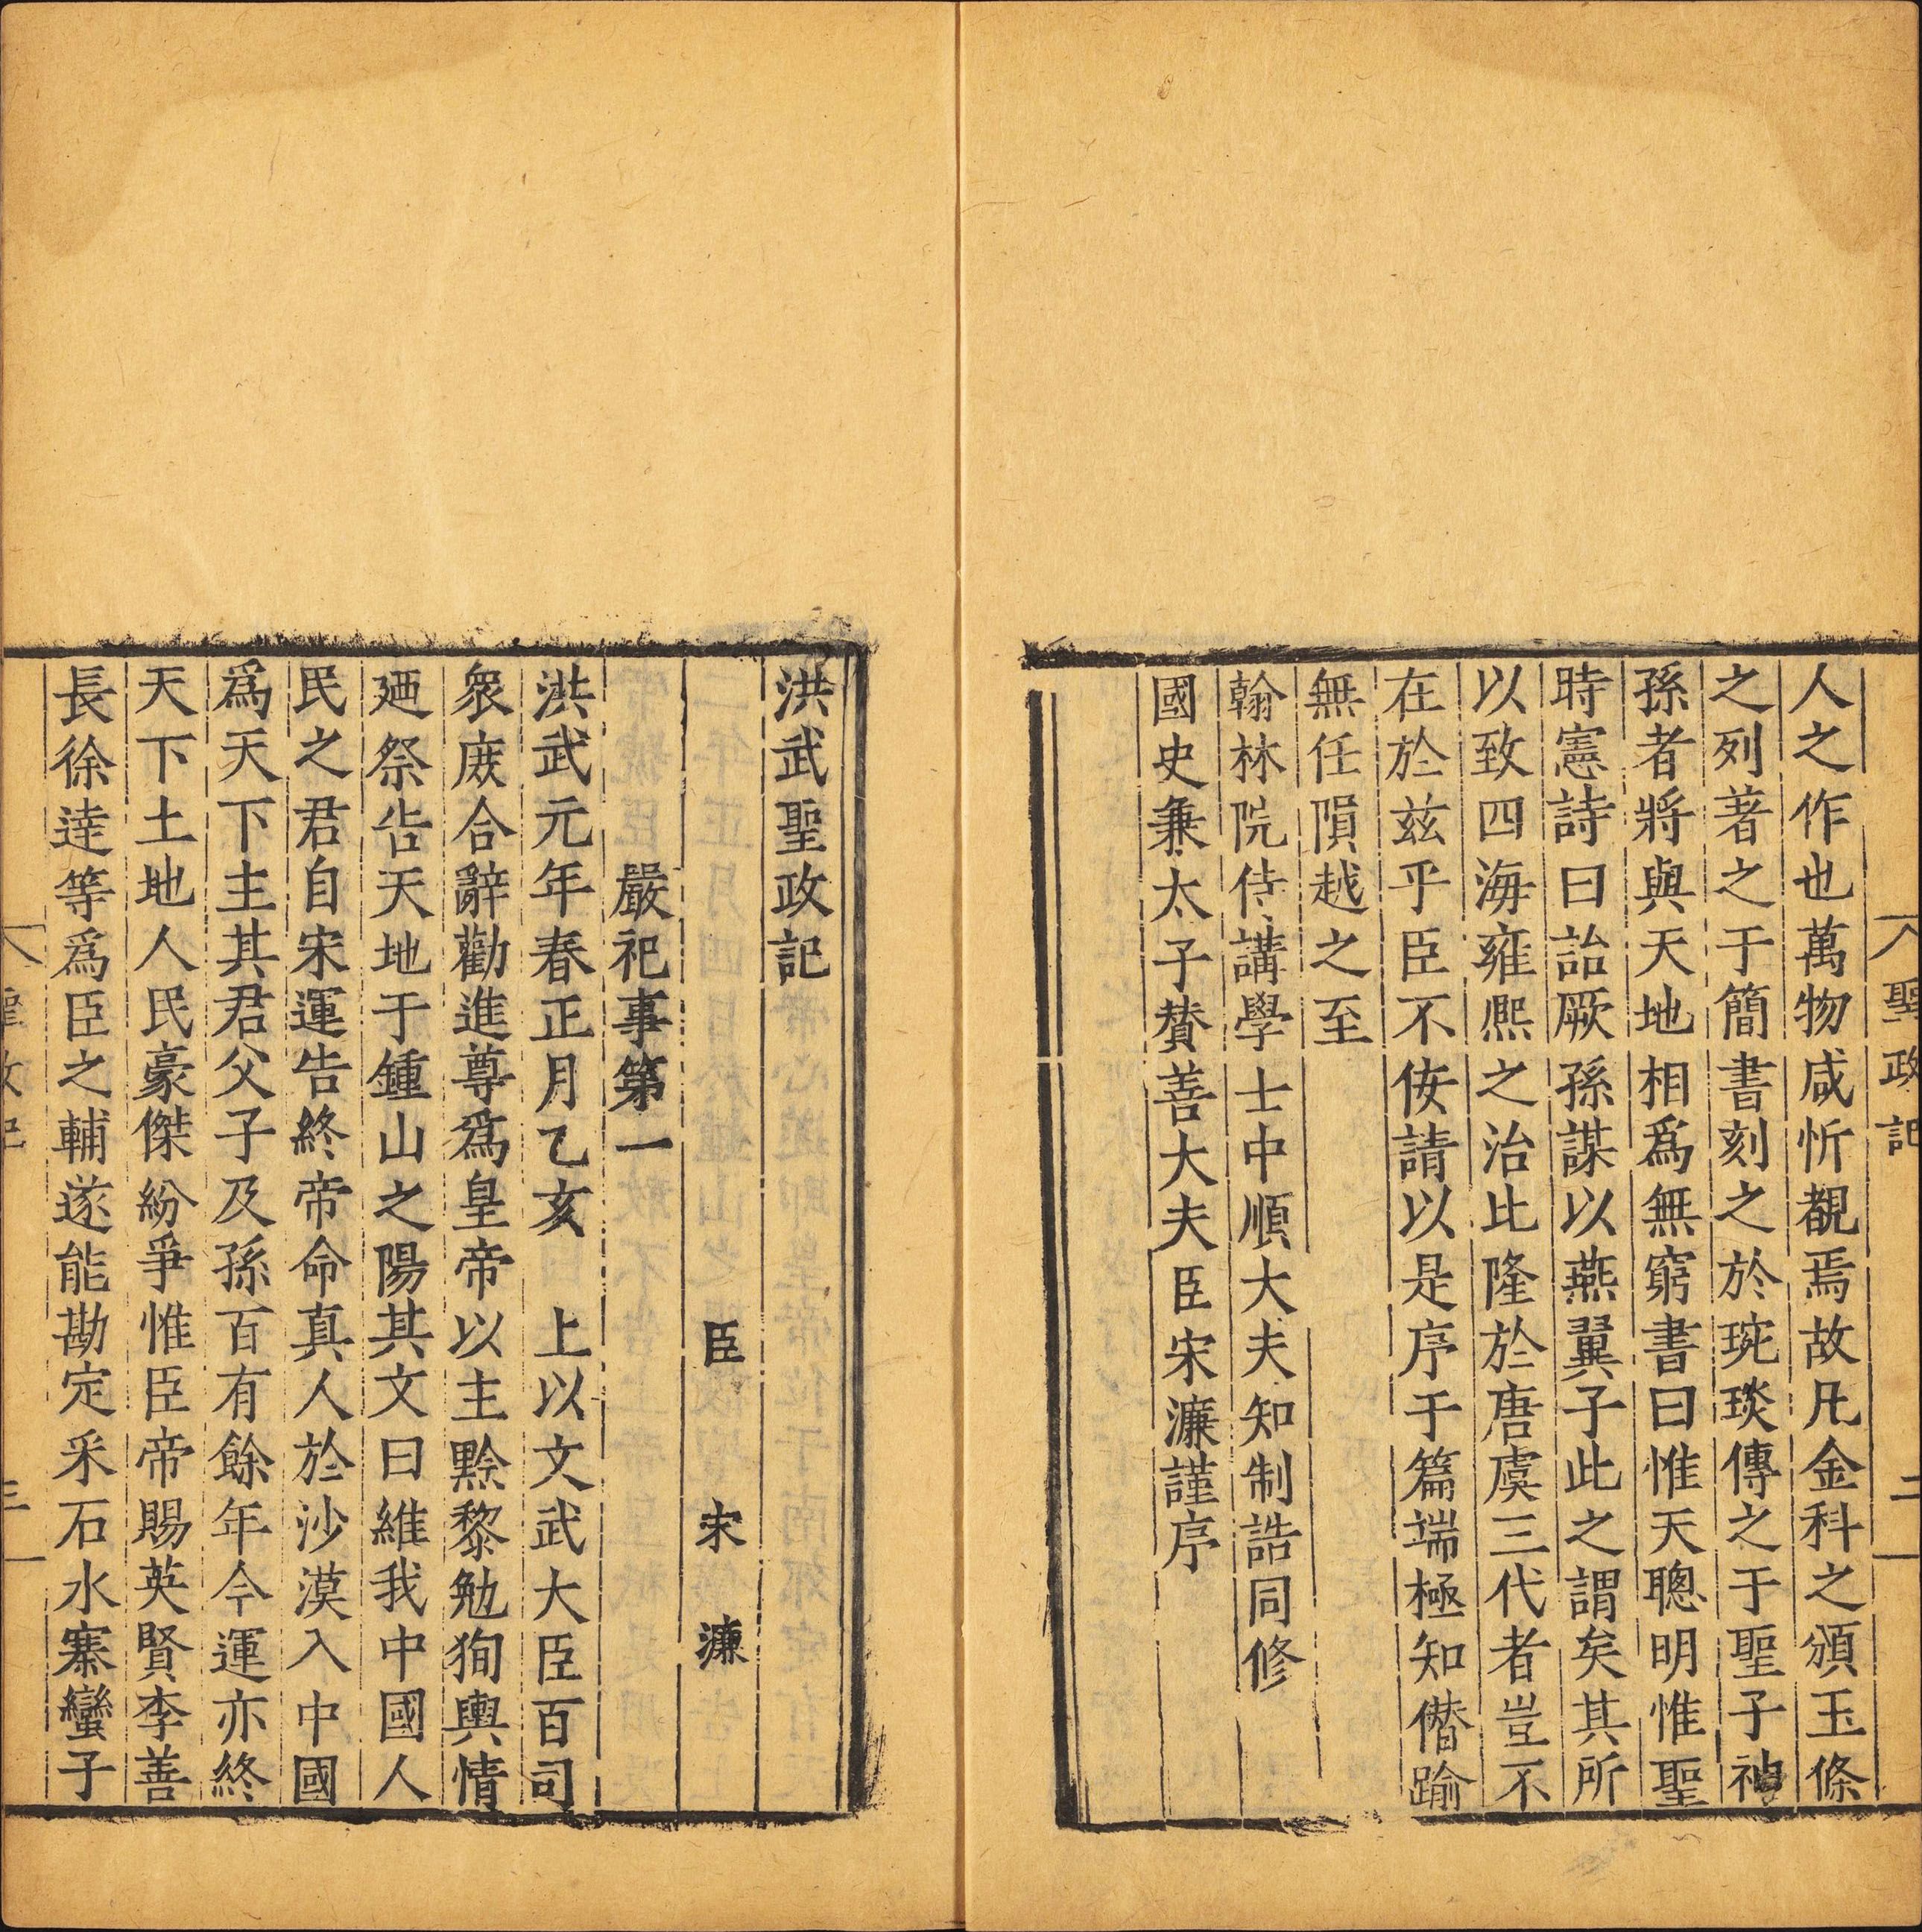 聖政記 二
人之作也萬物咸忻覩焉故凡金科之頒玉條
之列著之于簡書刻之於琬琰傳之于聖子神
孫者將與天地相爲無窮書曰惟天聰明惟聖
時憲詩曰詒厥孫謀以燕翼子此之謂矣其所
以致四海雍熈之治比隆於唐虞三代者豈不
在於兹乎臣不佞請以是序于篇端極知僭踰
無任隕越之至
翰林院侍講學士中順大夫知制誥同修
國史兼太子賛善大夫臣宋濂謹序
洪武聖政記
臣宋濂
嚴祀事第一
洪武元年春正月乙亥 上以文武大臣百司
衆庻合辭勸進尊爲皇帝以主黔黎勉狥輿情
廼祭告天地于鍾山之陽其文曰維我中國人
民之君自宋運告終帝命真人於沙漠入中國
爲天下主其君父子及孫百有餘年今運亦終
天下土地人民豪傑紛爭惟臣帝賜英賢李善
長徐逹等爲臣之輔遂能勘定采石水寨蠻子
聖政記 三